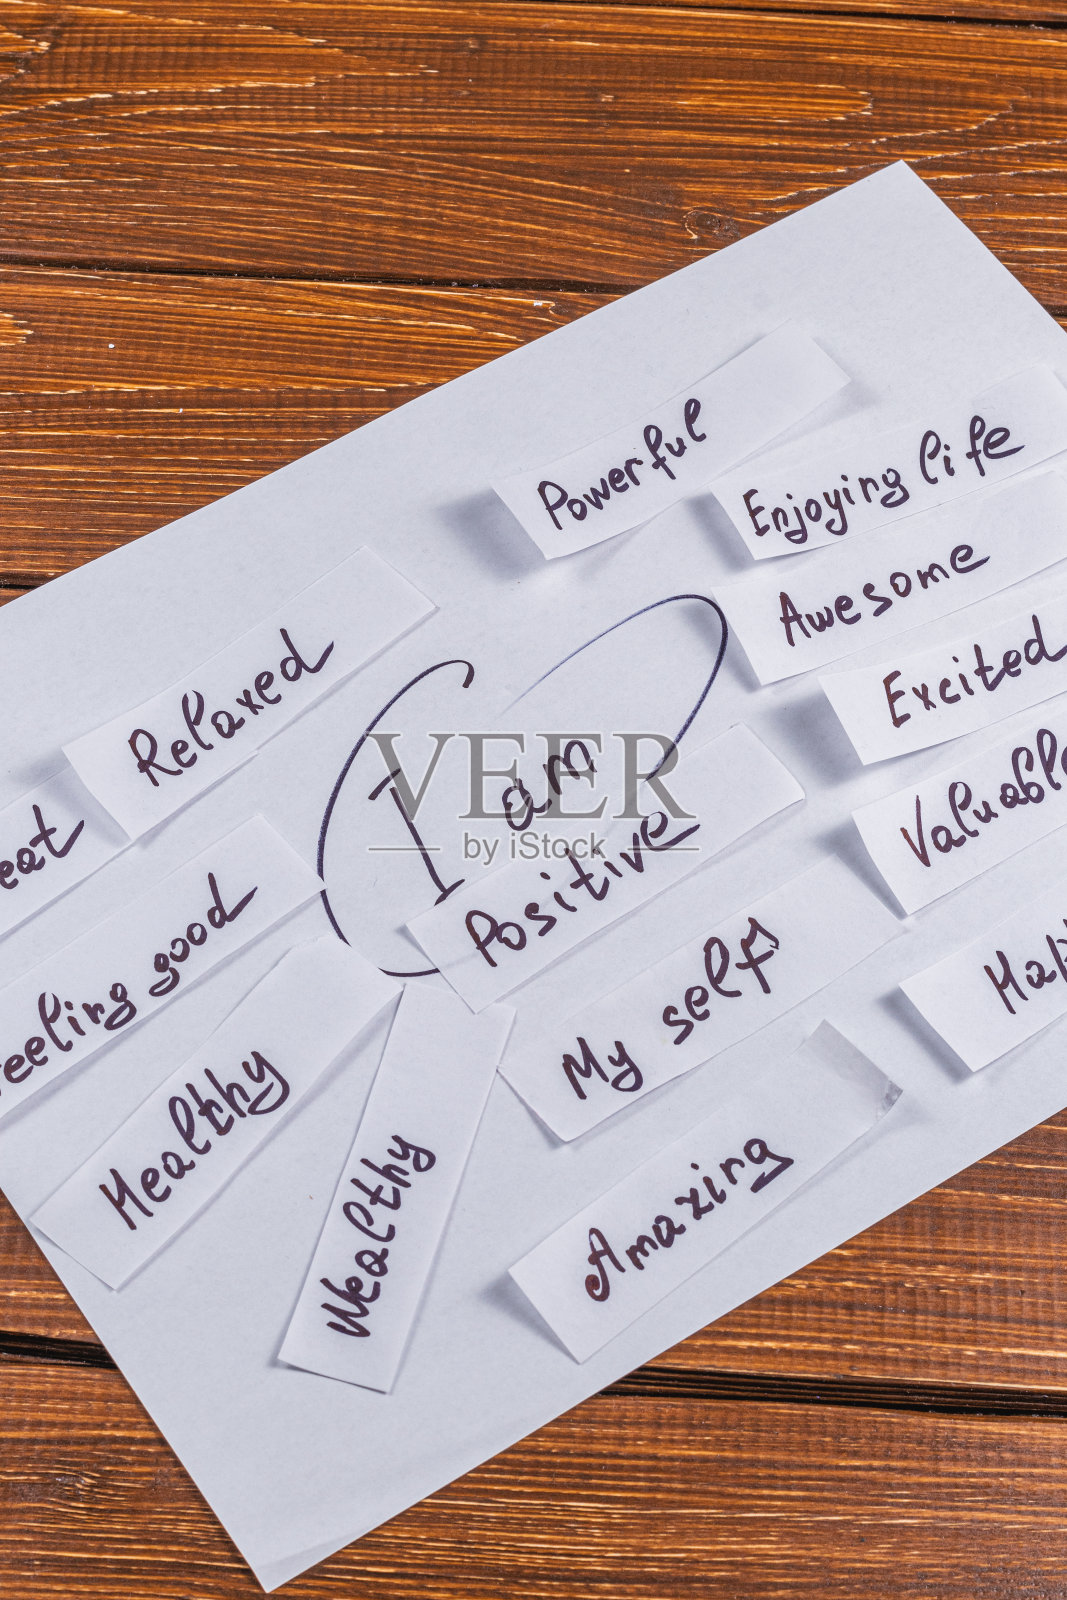 Powerful
Enjoying life
Awesome
Excited
Valuable
Relaxed
I am
Positive
My self
Amazing
eat
eeling good
Healthy
Wealthy
VEER
by iStock